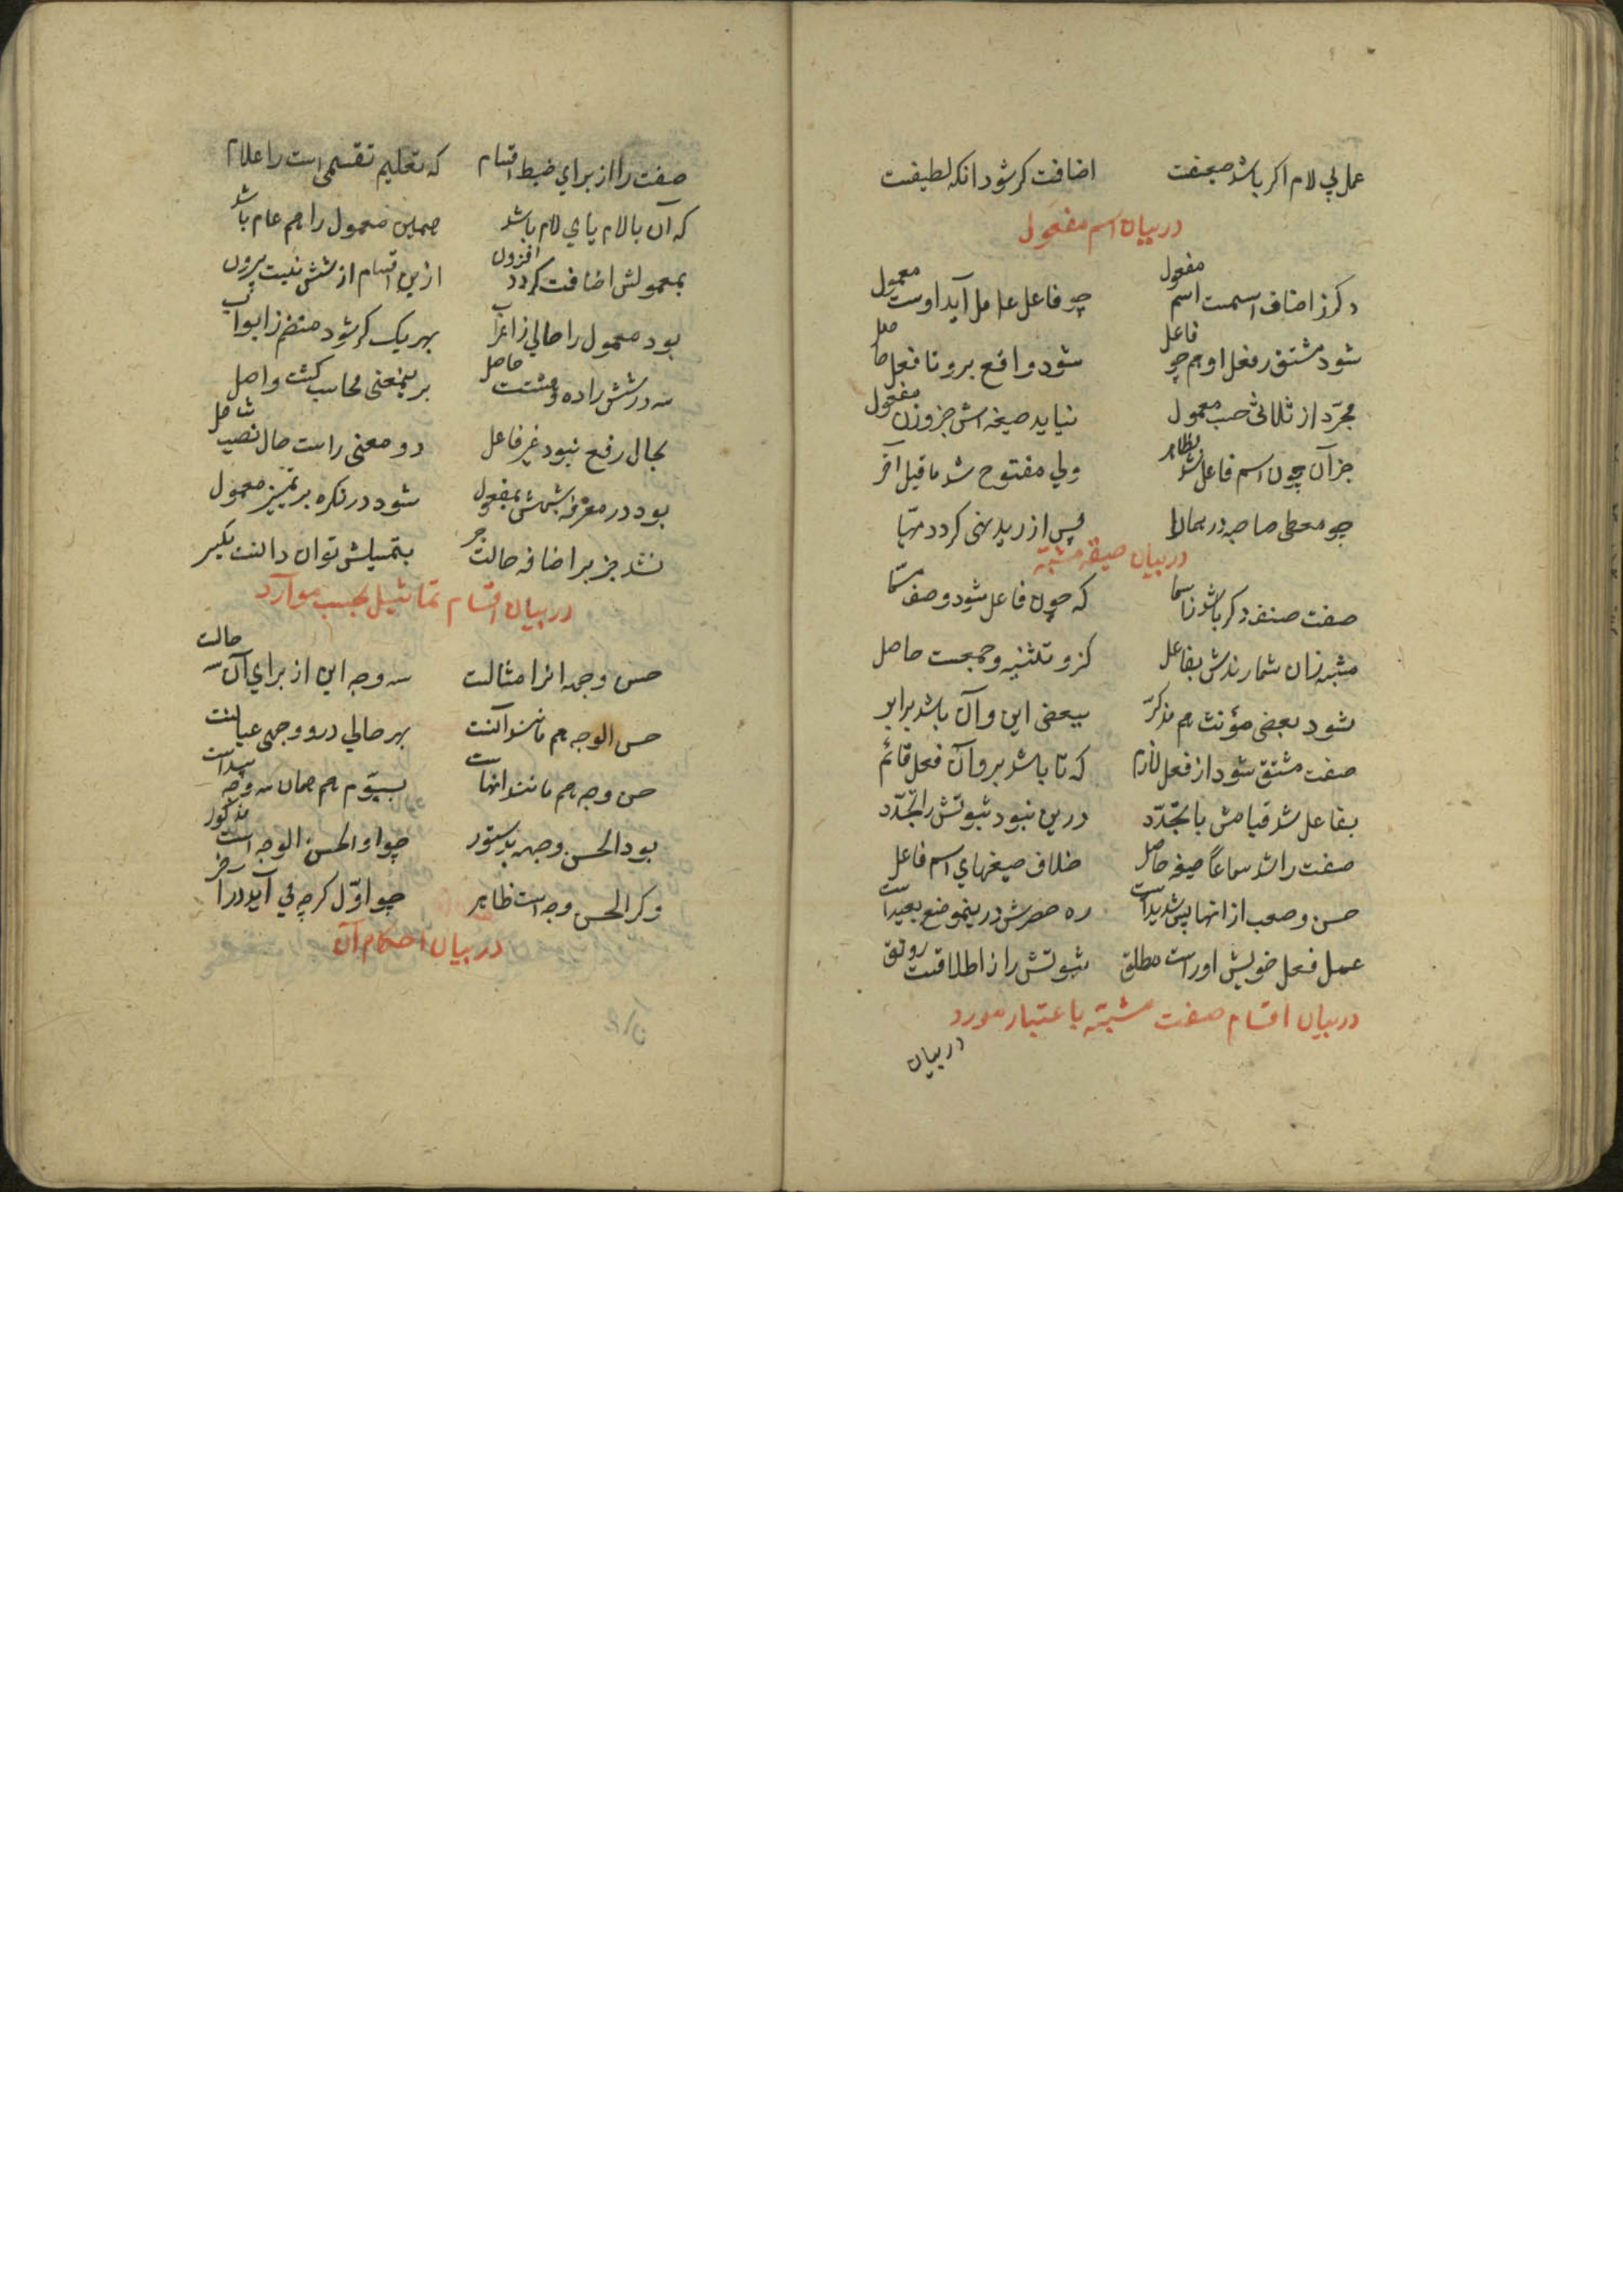 عمل بی لام اکر باشد ضعیفت اضافت کر شود انکه لطیفست
در بیان اسم مفعول
دکر ز اصناف اسمست اسم مفعول چو فاعل عامل آید اوست معمول
شود مشتق ز فعل او هم چو فاعل شود واقع برو تا فعل حاصل
مجرّد از ثلاثی حسب معمول نیاید صیغه اش جز وزن مفعول
جز آن چون اسم فاعل شد بظاهر ولی مفتوح شد ماقبل آخر
چو معطی صاحبه درهمان پس از زید نهی کردد مهیّا
در بیان صیغه مشبّه
صفت صنف دکر باشد ز اسما که چون فاعل شود وصف مسمّا
مشبه زان شمارندش بفاعل کزو تثنیه و جمعست حاصل
شود بعضی مؤنث هم مذکرّ ببعضی این و آن باشد برابر
صفت مشتق شود از فعل لازم که تا باشد برو آن فعل قائم
بفاعل شد قیامش با تجدّد درین نبود ثبوتش را تجدّد
صفت را شد سماعاً صیغه حاصل خلاف صیغهای اسم فاعل
حسن و صعب از انها پس شدیداست ره حصرش درینموضع بعیداست
عمل فعل خویش اوراست مطلق ثبوتش را ز اطلاقست رونق
در بیان اقسام صفت مشبّه باعتبار مورد
در بیان
صفت را از برای ضبط اقسام که تعلیم تقسیمی است را علام
که آن بالام یا بی لام باشد همین معمول را هم عام باشد
بمعمولش اضافت کردد افزون ازین اقسام از شش نیست بیرون
بود معمول را حالی ز اعراب بهر یک کر شود منضم ز ابواب
سه در شش را ده و هشتت حاصل بر ینمعنی محاسب کشت واصل
بحال رفع نبود غیر فاعل دو معنی راست حال نصب شامل
بود در معرفه شبهش بمفعول شود در نکره بر تمییز معمول
نشد جز بر اضافه حالت جر بتمثیلش توان دانست یکسر
در بیان اقسام تماثیل بحسب موارد
حسن وجهه انرا مثالست سه وجه این از برای آن سه حالت
حسن الوجه هم مانند آنست بهر حالی درو وجهی عیانست
حسن وجه هم مانند انهاست بسیّوم هم همان سه وجه پیداست
بود الحسن وجهه بدستور چو او الحسن الوجه است مذکور
وکر الحسن وجه است ظاهر چو اوّل کرچه بی آید در آخر
در بیان احکام آن